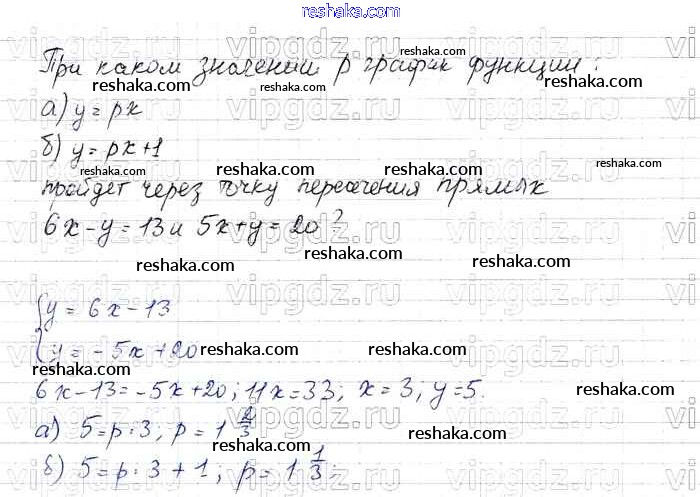 reshaka.com
При каком значении p график функции:
а) y = px
б) y = px + 1
пройдет через точку пересечения прямых
6x - y = 13 и 5x + y = 20?
{ y = 6x - 13
y = -5x + 20
6x - 13 = -5x + 20; 11x = 33; x = 3; y = 5.
а) 5 = p · 3; p = 1 2/3
б) 5 = p · 3 + 1; p = 1 1/3;